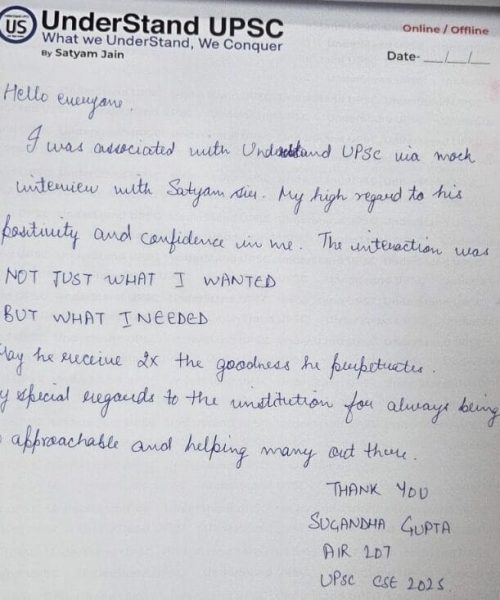 US
UnderStand UPSC
What we UnderStand, We Conquer
By Satyam Jain
Online / Offline
Date- __/__/__
Hello everyone.
I was associated with Understand UPSC via mock
interview with Satyam sir. My high regard to his
positivity and confidence in me. The interaction was
NOT JUST WHAT I WANTED
BUT WHAT I NEEDED
May he receive 2x the goodness he perpetuates.
My special regards to the institution for always being
approachable and helping many out there.
THANK YOU
SUGANDHA GUPTA
AIR 207
UPSC CSE 2025